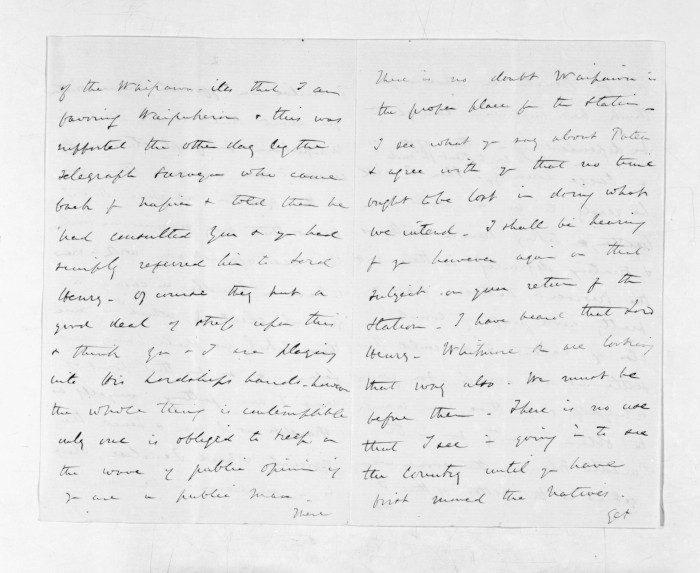 of the Waipawa-ites that I am
favoring Waipukurau & this was
supported the other day by the
Telegraph Surveyor who came
back fr Napier & told them he
had consulted you & you had
simply referred him to Lord
Henry - Of course they put a
good deal of stress upon this
& think you & I are playing
into His Lordships hands - however
the whole thing is contemptible
only one is obliged to keep on
the wave of public opinion if
you are a public man -
There
There is no doubt Waipawa is
the proper place for the Station -
I see what you say about
& agree with you that no time
ought to be lost in doing what
we intend - I shall be hearing
fr you however again on that
subject on your return fr the
Station - I have heard that Lord
Henry - Whitmore & are looking
that way also - We must be
before them - There is no use
that I see in going in to see
the Country until you have
first moved the Natives -
Get